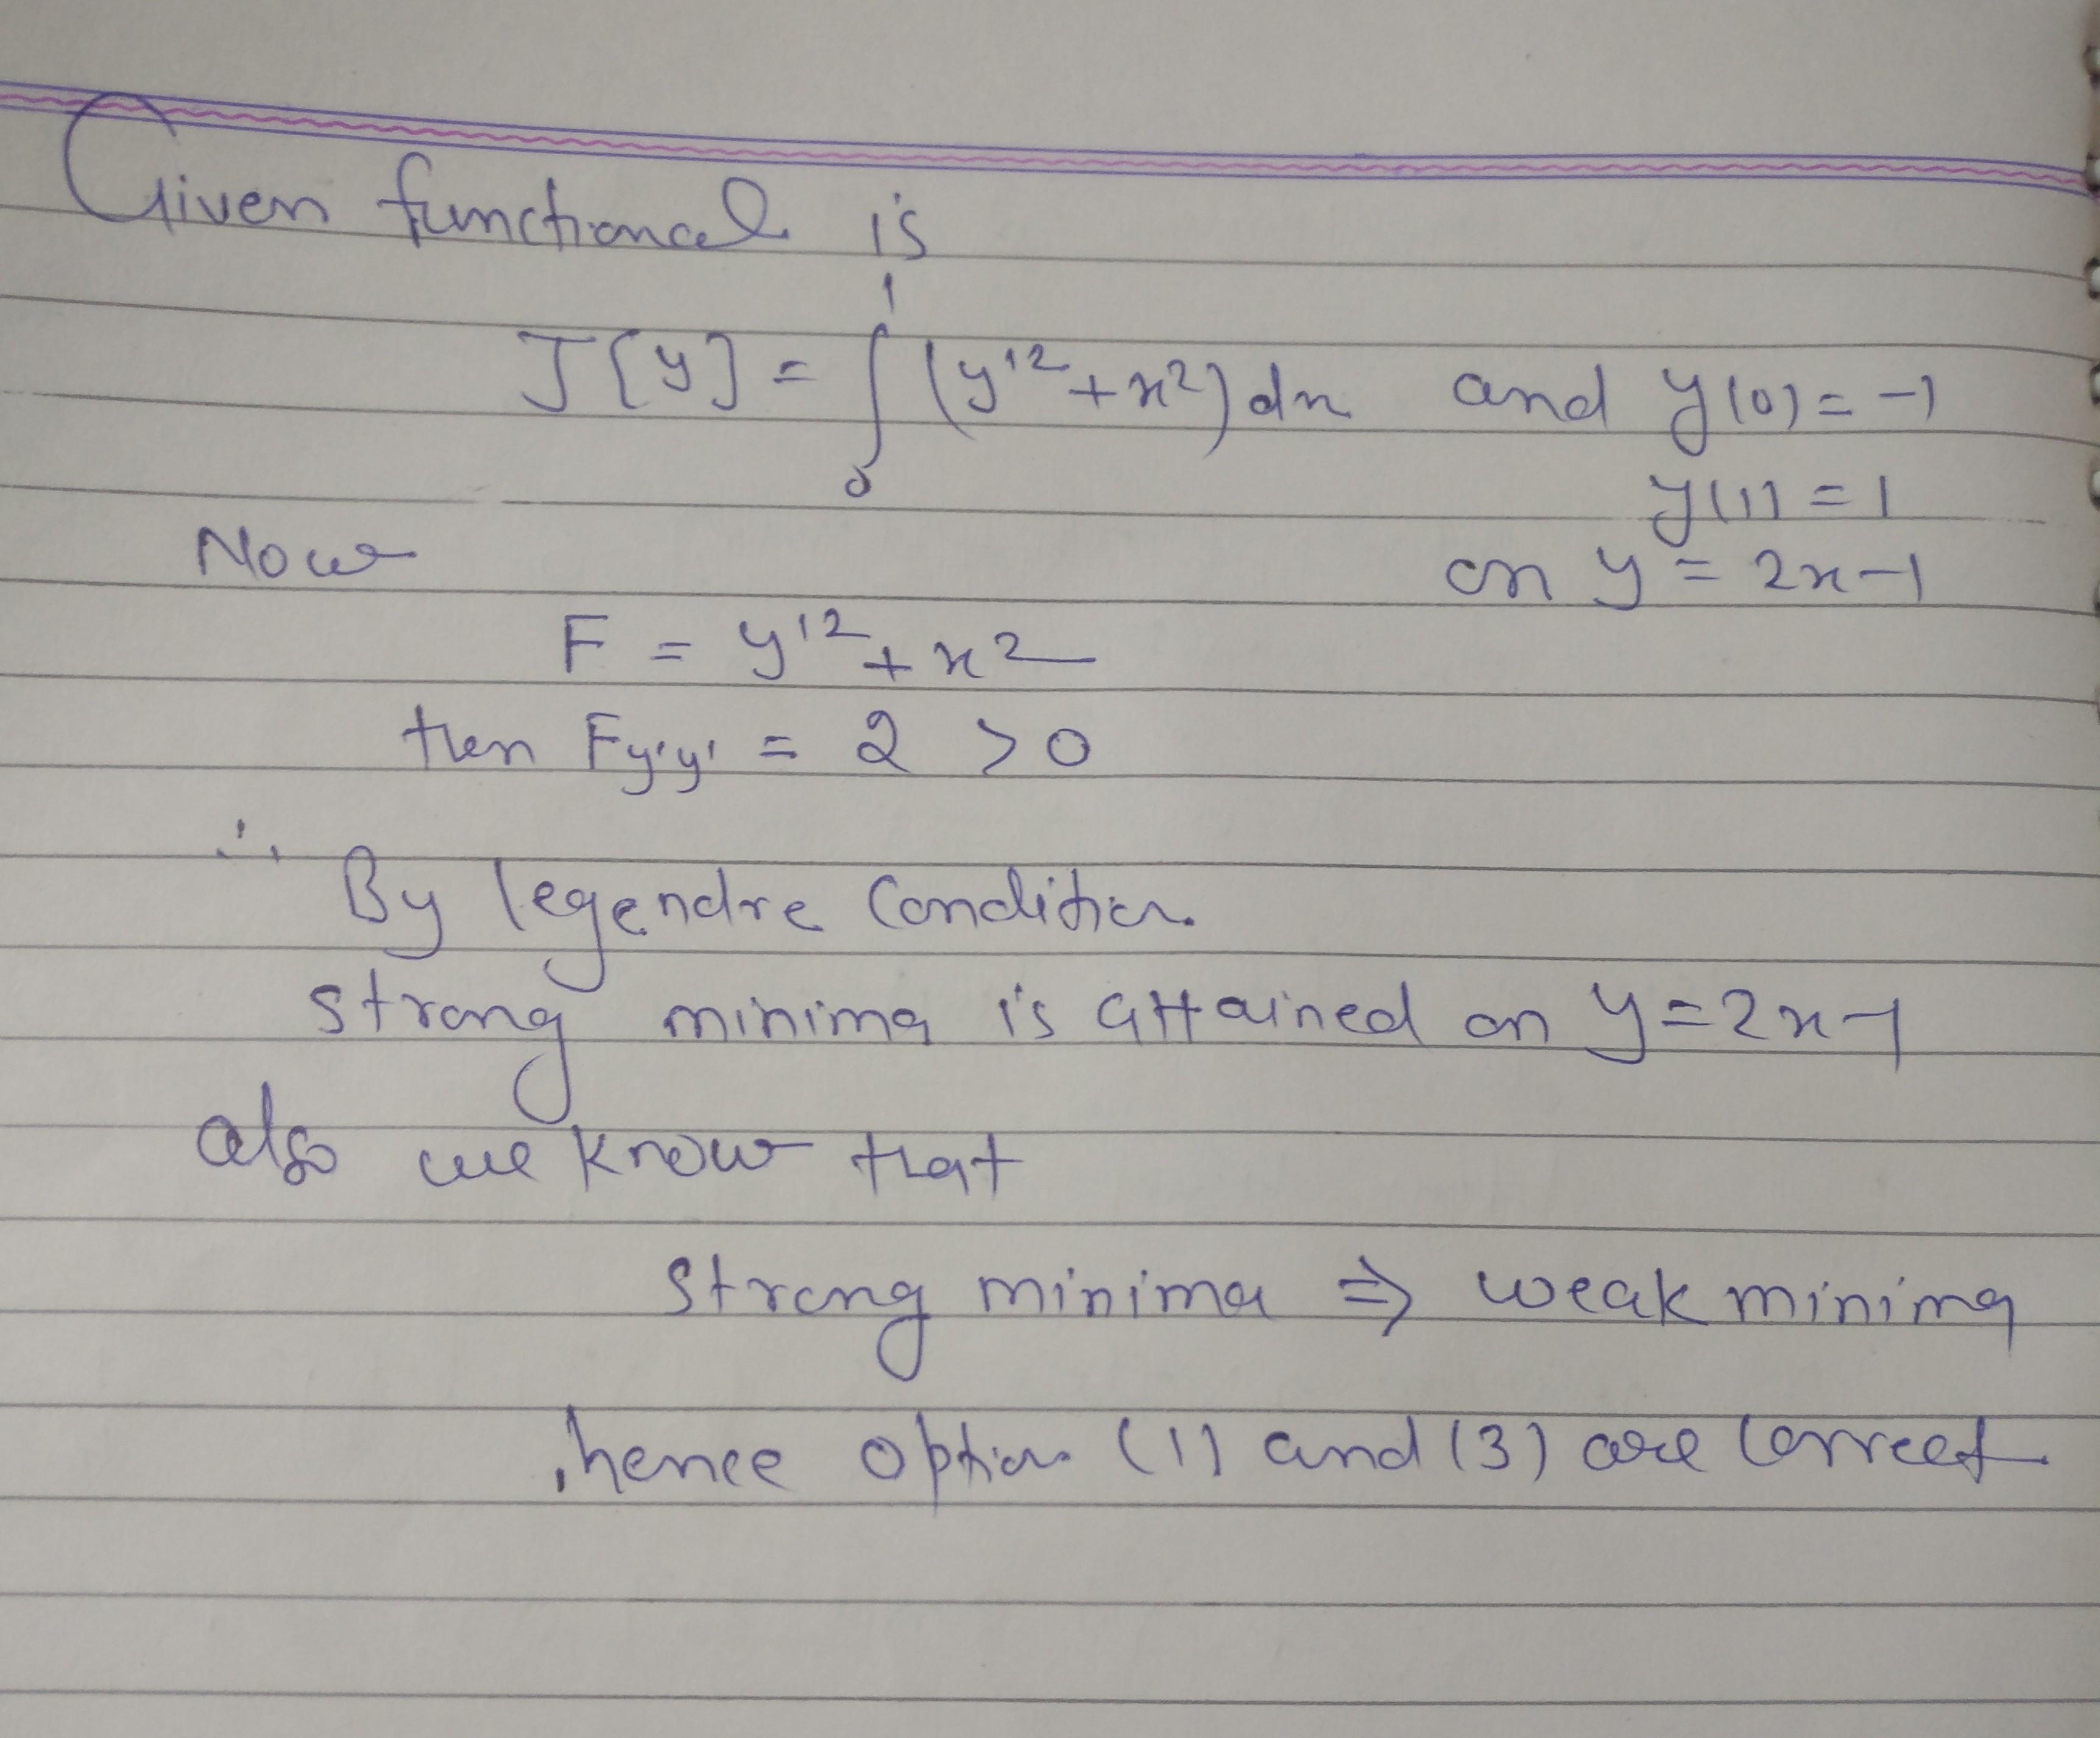 Given functional is
J[y] = ∫₀¹ (y'² + x²) dx and y(0) = -1
y(1) = 1
Now
on y = 2x-1
F = y'² + x²
then Fy'y' = 2 > 0
∴ By legendre Condition
strong minima is attained on y = 2x-1
also we know that
strong minima ⇒ weak minima
hence option (1) and (3) are correct